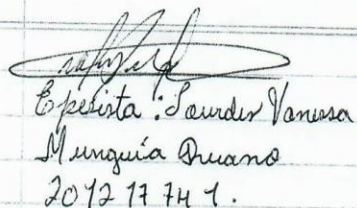 Epesista : Lourdes Vanessa
Munguía Ruano
201217741.